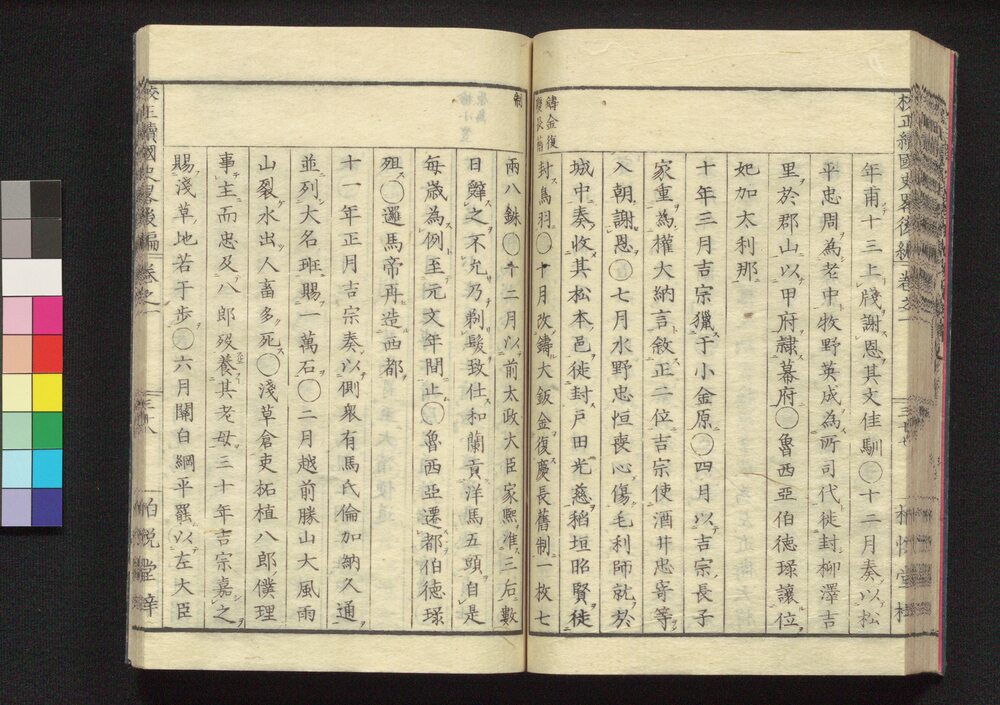 校正續國史畧後編 卷之一
三十七
年甫十三上牋謝恩其文佳馴〇十二月奏以松
平忠周為老中牧野英成為所司代徙封柳澤吉
里於郡山以甲府隷幕府〇魯西亞伯徳琭讓位
妃加太利那
十年三月吉宗獵于小金原〇四月以吉宗長子
家重為權大納言敘正二位吉宗使酒井忠寄等
入朝謝恩〇七月水野忠恒喪心傷毛利師就於
城中奏收其松本邑徙封戸田光慈稻垣昭賢徙
鑄金復
慶長舊
制
封鳥羽〇十月改鑄大鈑金復慶長舊制一枚七
兩八銖〇十二月以前太政大臣家熈准三后數
日辭之不允乃剃髮致仕和蘭貢洋馬五頭自是
每歳為例至元文年間止〇魯西亞遷都伯徳琭
殂〇邏馬帝再造西都
十一年正月吉宗奏以側衆有馬氏倫加納久通
並列大名班賜一萬石〇二月越前勝山大風雨
山裂水出人畜多死〇淺草倉吏柘植八郎僕理
事主而忠及八郎歿養其老母三十年吉宗嘉之
賜淺草地若干歩〇六月關白綱平罷以左大臣
校正續國史畧後編 卷之一
三十八
柏悅堂梓